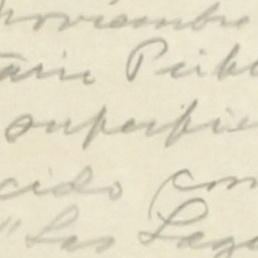 noviembre
tario Públ
superficie
cido com
"Las Lag